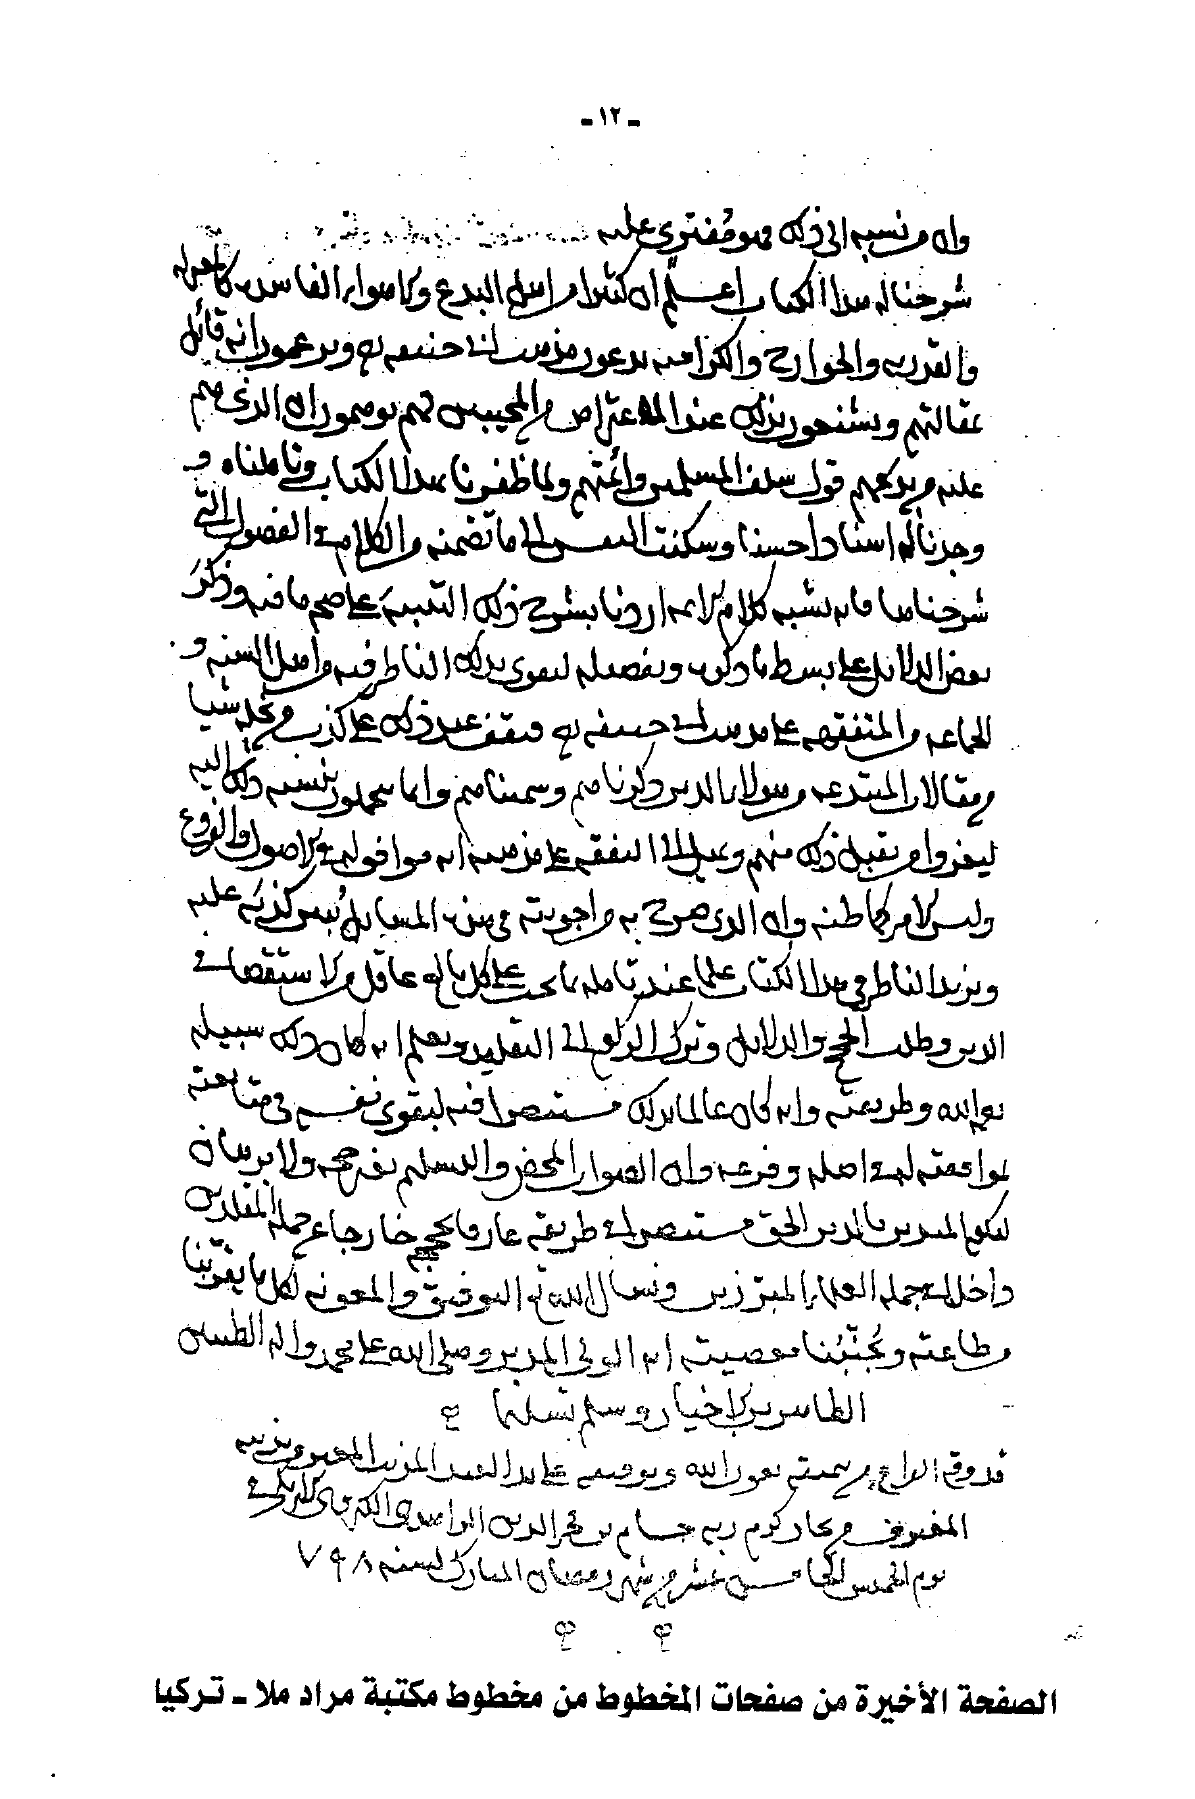 - ١٢ -
وان من نسبه الى ذلك فهو مفترى عليه
شرحنا له هذا الكتاب اعلم ان كثيرا من اهل البدع والاهواء الفاسده كالمعتزله
والقدريه والخوارج والكراميه يدعون مذهب ابى حنيفه ويزعمون انه قائل
مقالتهم ويشنعون بذلك عند الاعتراض من المجيبين لهم يوهمون ان الذى هم
عليه من بدعهم قول سلف المسلمين وائمتهم ولما ظفرنا بهذا الكتاب وتاملناه و
وجدنا له اسنادا حسنا وسكنت النفس الى ما تضمنه من الكلام فى الفصول التى
شرحناها فانه يشبه كلام الائمه اردنا بشرح ذلك التنبيه على صحه ما فيه وذكر
بعض الدلائل على بسط ما ذكره وتفصيله ليقوى بذلك الناظر فيه من اهل السنه و
الجماعه من المتفقهه على مذهب ابى حنيفه فيقف عند ذلك على كذب من نحله شيا
من مقالات المبتدعه من هولاء الذين ذكرناهم وسميناهم وانما يتجملون بنسبه ذلك اليه
ليغروا من يقبل ذلك منهم ويميل الى التفقه على مذهبه انه موافق له فى الاصول والفروع
وليس الامر كما ظنه وان الذى صرح به من اجوبته فى هذه المسايل يبين كذبه عليه
ويزيد الناظر فى هذا الكتاب علما عند تامله بما يجب على كل بالغ عاقل من الاستقصاء فى
الدين وطلب الحجج والدلايل وترك الركون الى التقليد ويعلم انه كان ذلك سبيله
بعون الله وطريقته وانه كان عالما بذلك مستبصرا فيه ليقوى نفسه فى متابعته
لموافقته له فى اصله وفرعه وان الصواب المحض والتسليم بغير حجه ولا برهان
ليكون المتدين بالدين الحق مستبصرا فى طريقه عارفا بحججه خارجا عن جمله المقلدين
داخلا فى جمله العلماء المبرزين ونسال الله تع التوفيق والمعونه لكل ما يقربنا
من طاعته ويجنبنا معصيته انه الولى الحميد وصلى الله على محمد واله الطيبين
الطاهرين الاخيار وسلم تسليما
قد وقع الفراغ من تتمته بعون الله وتوفيقه على يد العبد المذنب المعترف بذنبه
المغترف من بحار كرم ربه حسام بن فخر الدين
يوم الخميس الخامس عشر من شهر رمضان المبارك لسنه ٧٩٨
الصفحة الأخيرة من صفحات المخطوط من مخطوط مكتبة مراد ملا - تركيا